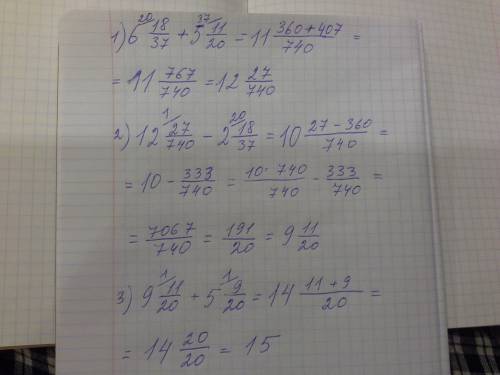 1) 6 18/37 (20 + 5 11/20 (37 = 11 (360+407)/740 =
= 11 767/740 = 12 27/740
2) 12 27/740 (1 − 2 18/37 (20 = 10 (27−360)/740 =
= 10 − 333/740 = 10·740/740 − 333/740 =
= 7067/740 = 191/20 = 9 11/20
3) 9 11/20 (1 + 5 9/20 (1 = 14 (11+9)/20 =
= 14 20/20 = 15